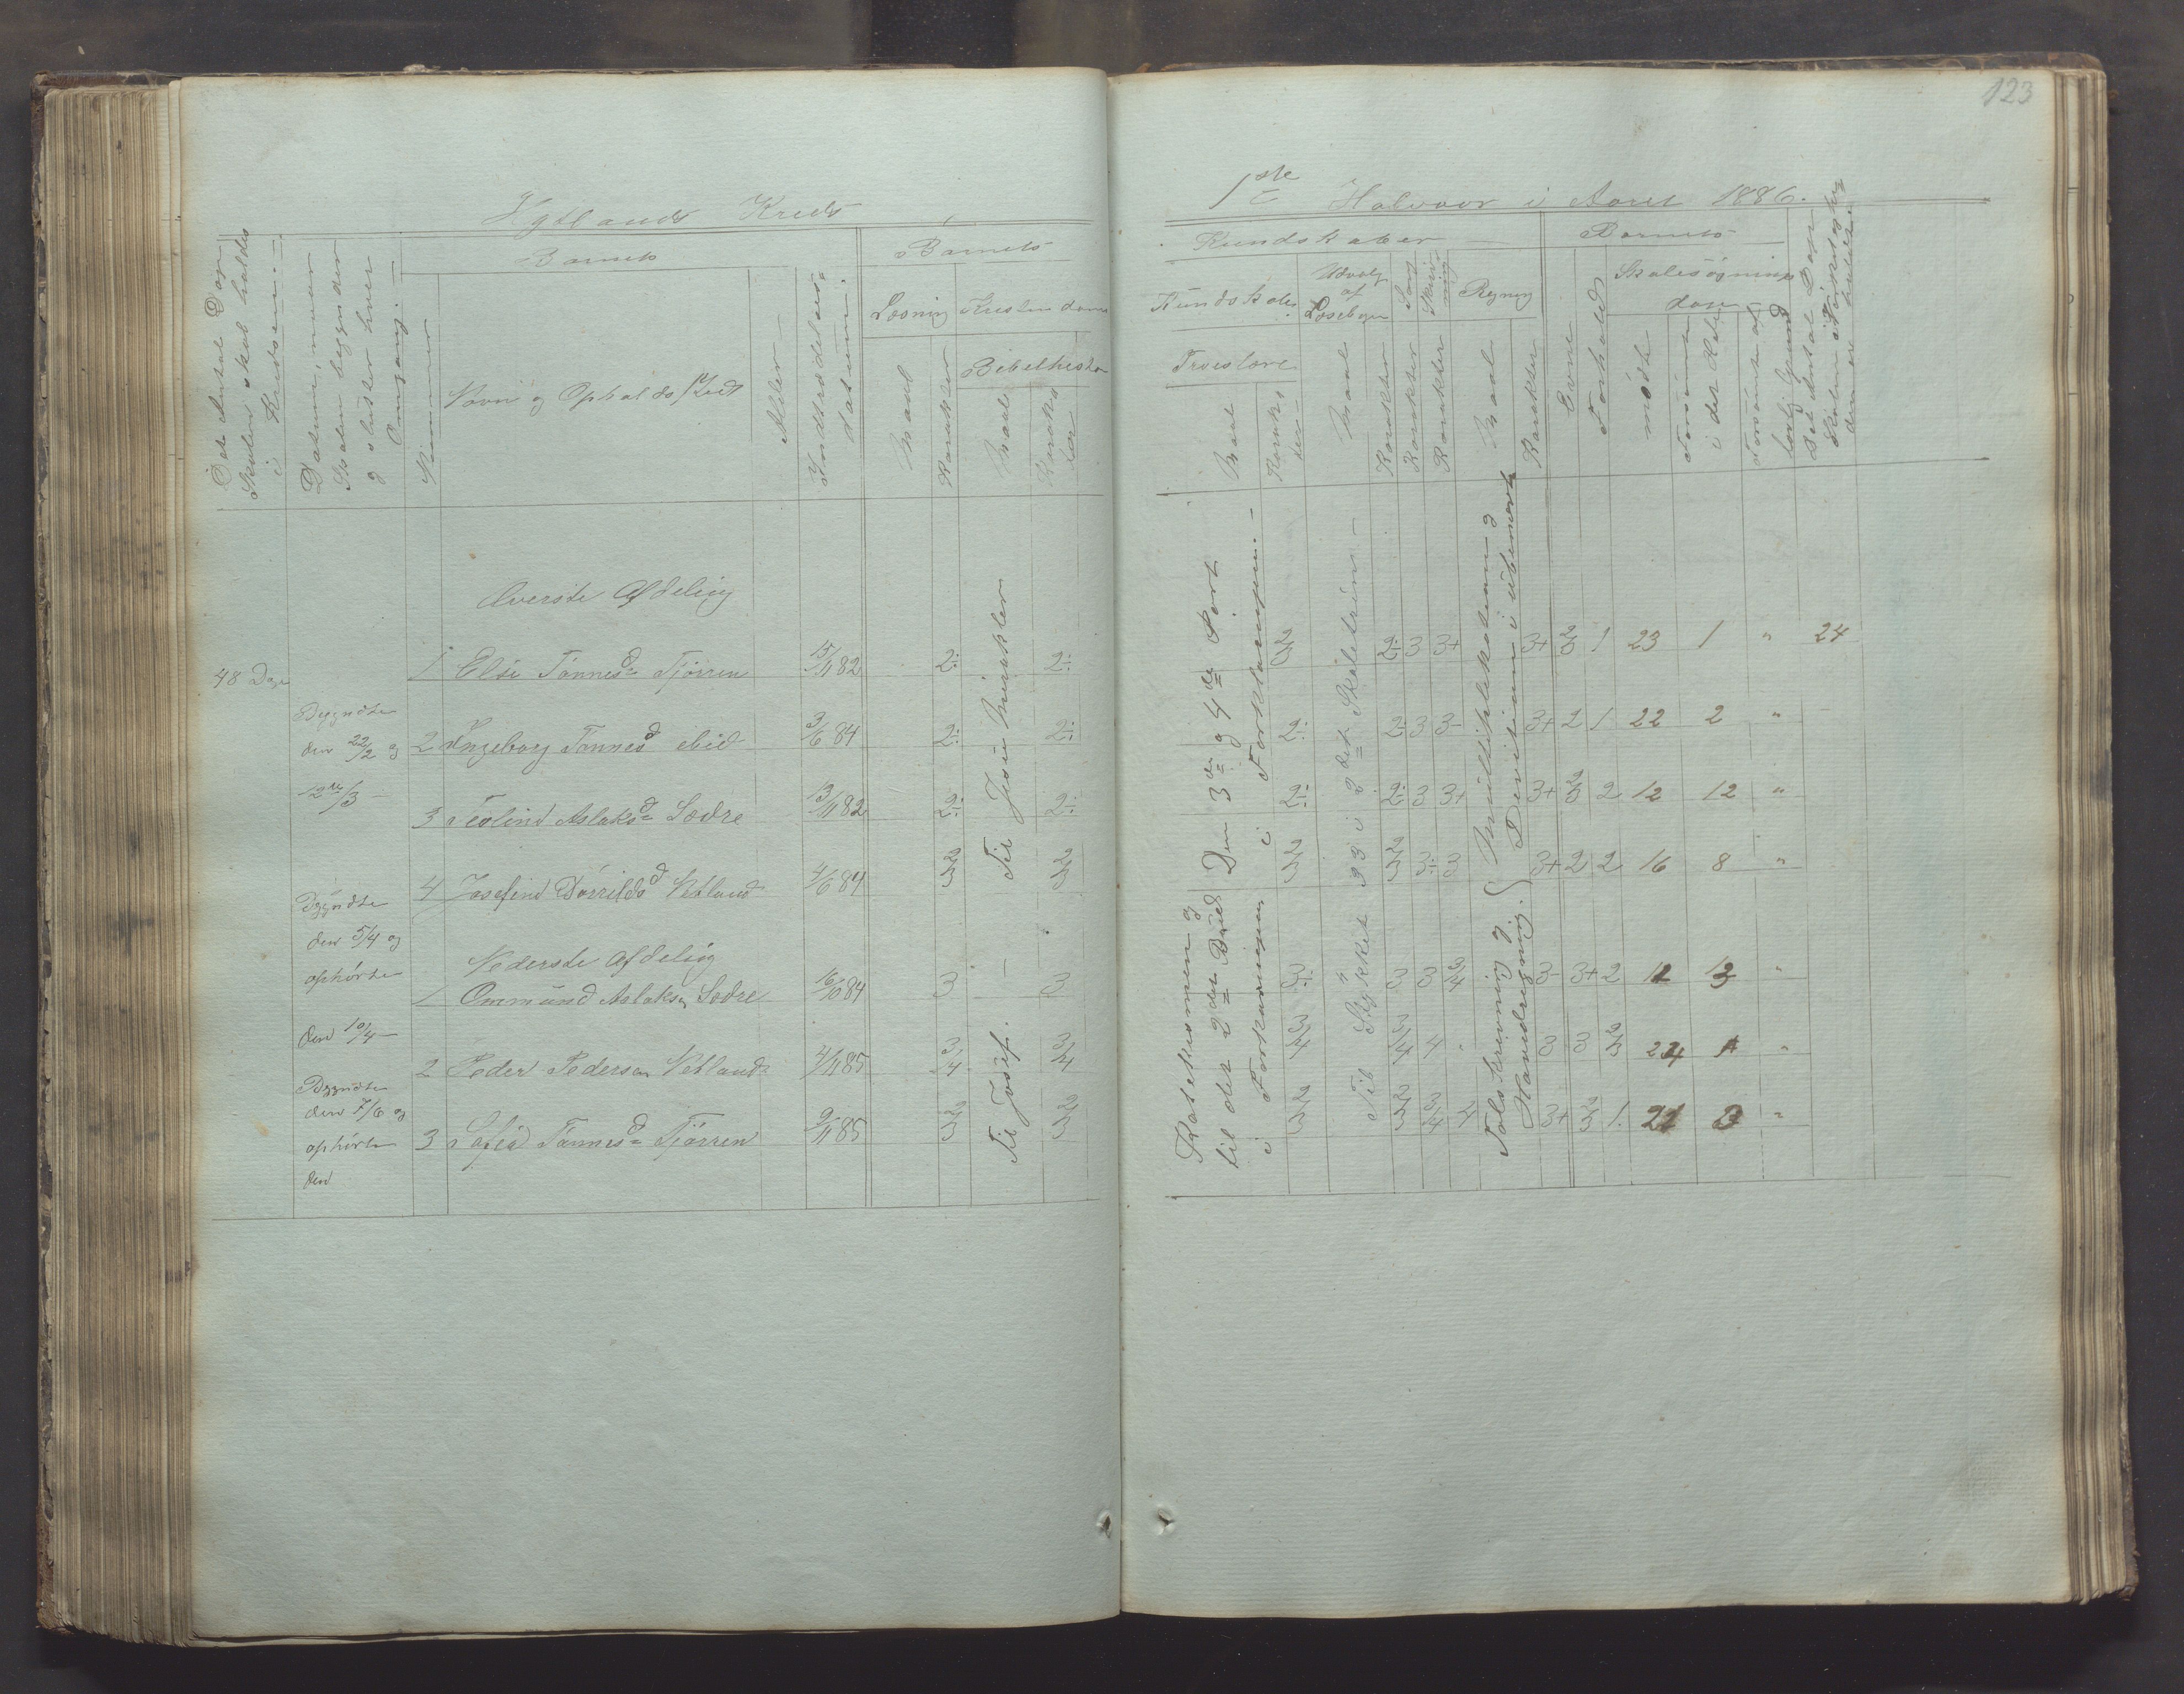 123
Kreds
1ste Halvaar i Aaret 1886.
Det Antal Dage
Skolen skal holdes
i Kredsen.
Datum, naar
Skolen begynder
og slutter hver
Omgang
Nummer
Barnets
Navn og Opholdssted
Alder
Indtrædelses-
datum.
Barnets
Læsning
Kristendoms
Maal
Karakter
Bibelhistor
Maal
Karak
ter
Kundskaber
Kundskaber
Troeslære
Maal
Karak
ter
Udvalg
af
Læsebogen
Maal
Karakter
Sang
Karakter
Skriv
ning
Karakter
Regning
Maal
Karakter
Barnets
Evne
Forhold
Skolesøgnings
dage
mødte
Forsømte
i det Hele
Forsømte af
lovlig Grund
Det Antal Dage
Skolen
den er holdt
Øverste Afdeling
48 Dage
1 Elsi Tønnesd Tjørren 15/11 82 2÷ 2÷ 2/3 2÷ 3 3+ 3+ 2/3 1 23 1 " 24
Begyndte
den 22/2 og
12te/3
2 Ingeborg Tønnesd ibid 3/6 84 2÷ 2÷ 2÷ 2÷ 3 3- 3+ 2 1 22 2 "
3 Teoline Aslaksd Sædre 13/11 82 2÷ 2÷ 2÷ 2÷ 3 3+ 3+ 2/3 2 12 12 "
4 Josefine Vetland 4/6 84 2/3 2/3 2/3 2/3 3÷ 3 3+ 2 2 16 8 "
Til Jesu Mirakler
Den 3die og 4de Part
i Forklaringen.
Til Stykket 33 i 2det Skoletrin
Multiplikation og
Division i ubenævnt
Begyndte
den 5/4 og
ophørte
den 10/4
Nederste Afdeling
1 Ommund Aslaksen Sædre 16/10 84 3 3 3÷ 3 3 3/4 3- 3+ 2 12
2 Peder Pedersen Vetland 4/11 85 3/4 3/4 3/4 3/4 4 3 3 2/3
Begyndte
den 7/6 og
ophørte
den
3 Sofia Tønnesd Tjørren 9/11 85 2/3 2/3 2/3 2/3 3/4 4 3+ 2/3 1 21 3 "
Til Josef.
Katekismen og
til det 2det Bud
i Forklaringen
Talskrivning og
Hovedregning.